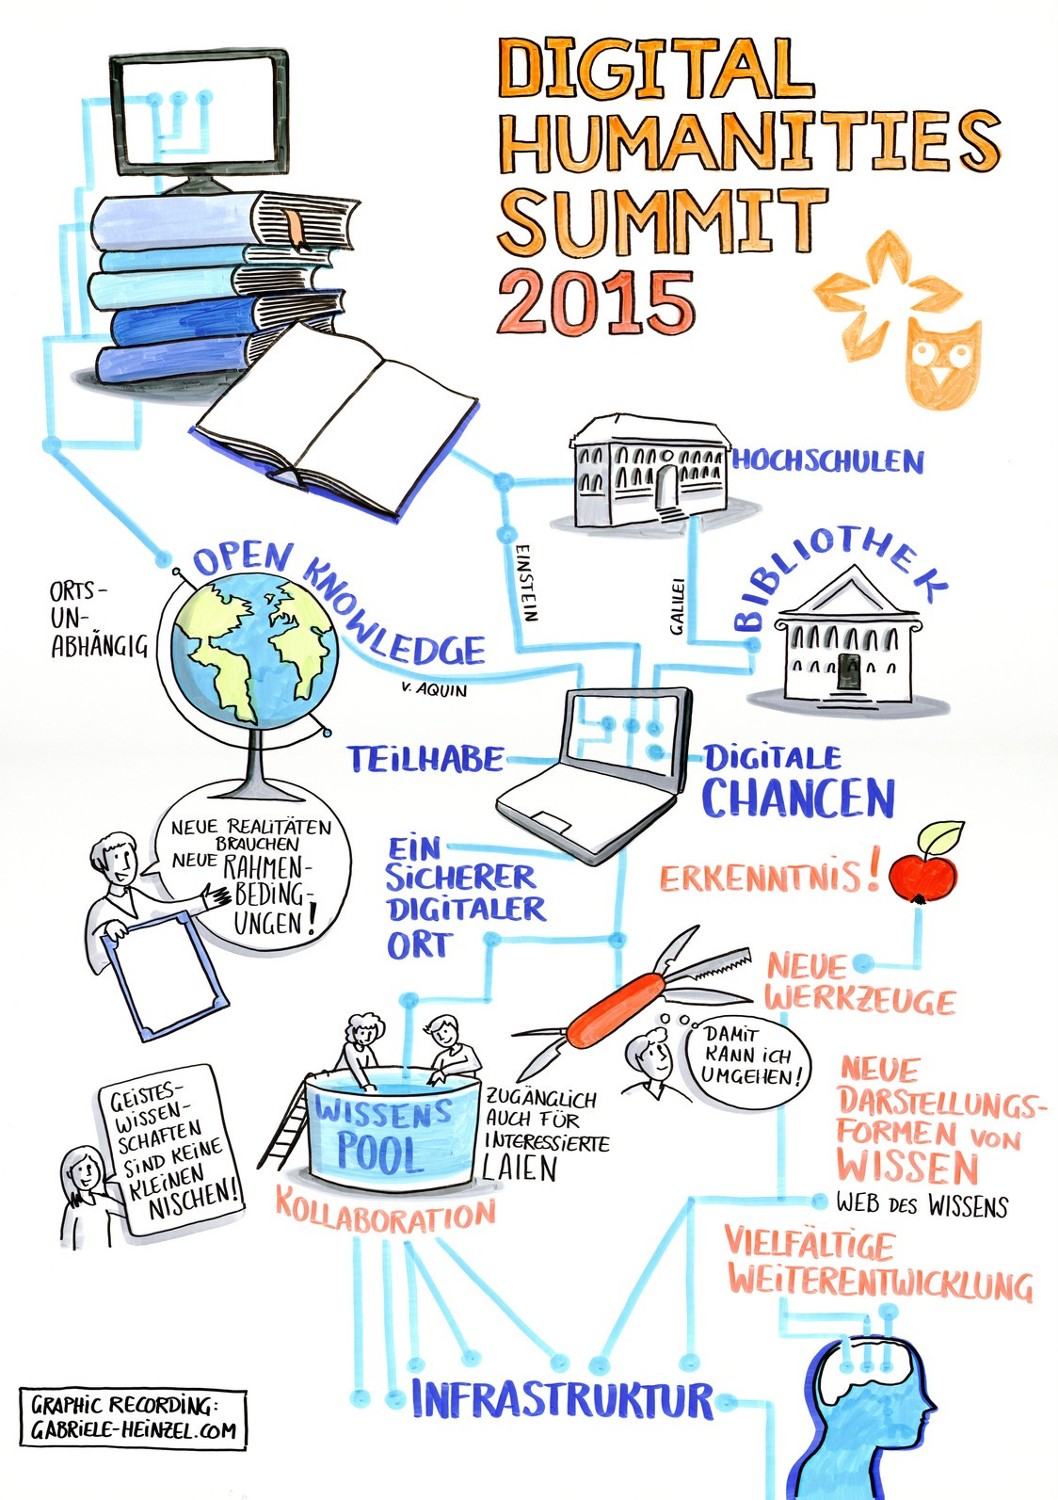 DIGITAL
HUMANITIES
SUMMIT
2015
HOCHSCHULEN
BIBLIOTHEK
EINSTEIN
GALILEI
OPEN KNOWLEDGE
ORTS-
UN-
ABHÄNGIG
V. AQUIN
TEILHABE
DIGITALE
CHANCEN
NEUE REALITÄTEN
BRAUCHEN
NEUE RAHMEN-
BEDING-
UNGEN!
EIN
SICHERER
DIGITALER
ORT
ERKENNTNIS!
NEUE
WERKZEUGE
DAMIT
KANN ICH
UMGEHEN!
NEUE
DARSTELLUNGS-
FORMEN VON
WISSEN
WEB DES WISSENS
GEISTES-
WISSEN-
SCHAFTEN
SIND KEINE
KLEINEN
NISCHEN!
WISSENS
POOL
ZUGÄNGLICH
AUCH FÜR
INTERESSIERTE
LAIEN
KOLLABORATION
VIELFÄLTIGE
WEITERENTWICKLUNG
INFRASTRUKTUR
GRAPHIC RECORDING:
GABRIELE-HEINZEL.COM